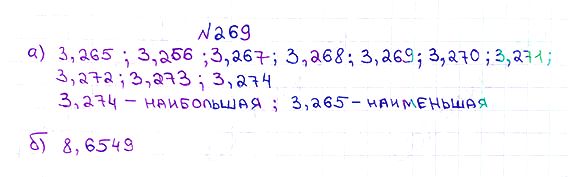 №269
а) 3,265; 3,266; 3,267; 3,268; 3,269; 3,270; 3,271;
3,272; 3,273; 3,274
3,274 – НАИБОЛЬШАЯ; 3,265 – НАИМЕНЬШАЯ
б) 8,6549